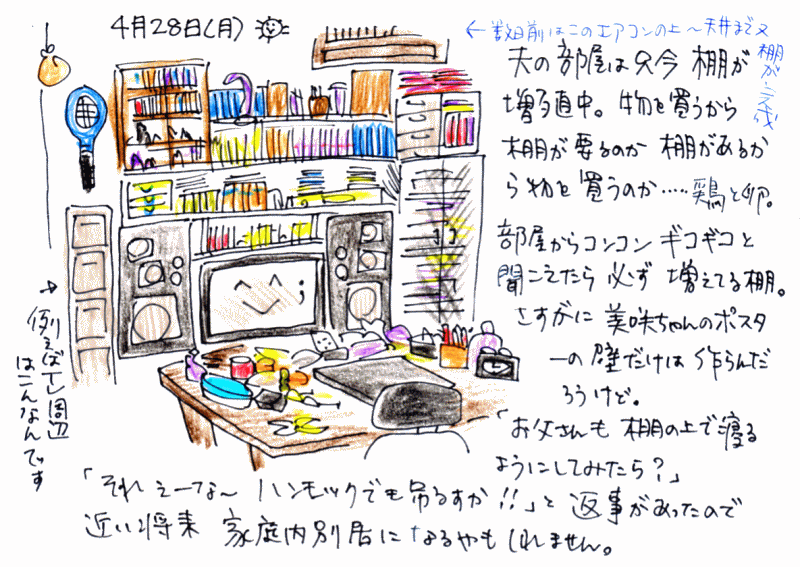 4月28日(月)
← 数日前はこのエアコンの上〜天井まで又
棚が
夫の部屋は只今 棚が
増殖中。物を買うから
棚が要るのか 棚があるか
ら物を買うのか……鶏と卵。
部屋からコンコン ギコギコと
聞こえたら 必ず 増えてる棚。
さすがに 美咲ちゃんのポスタ
ーの壁だけは 作らんだ
ろうけど。
「お父さんも 棚の上で寝る
ようにしてみたら?」
「それえーな〜 ハンモックでも吊るすか!!」と 返事があったので
近い将来 家庭内別居に なるやもしれません。
例えばTV周辺
はこんなんです